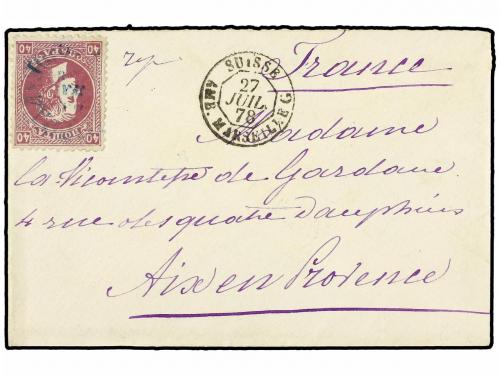 40 40
40 40
France
SUISSE
27
JUIL.
78
AMB. MARSEILLE C
Madame
la Vicomtesse de Gardane
4 rue des quatre dauphins
Aix en Provence